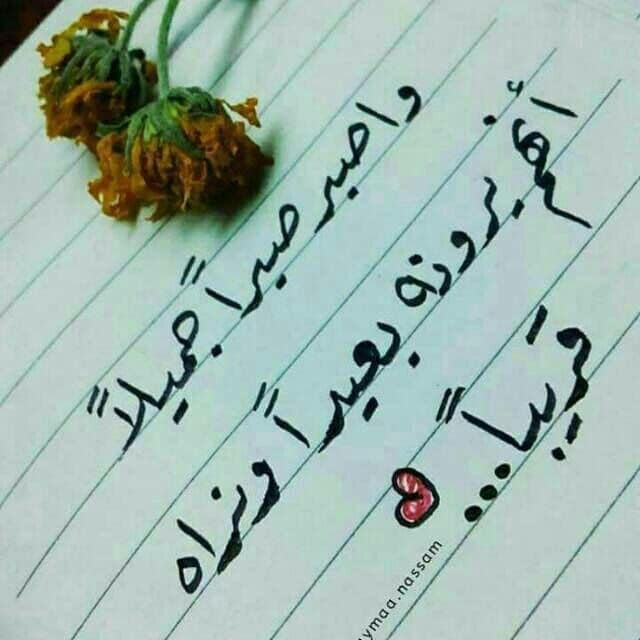 واصبر صبراً جميلاً
إنهم يرونه بعيداً ونراه
قريباً...
ymaa.nassam